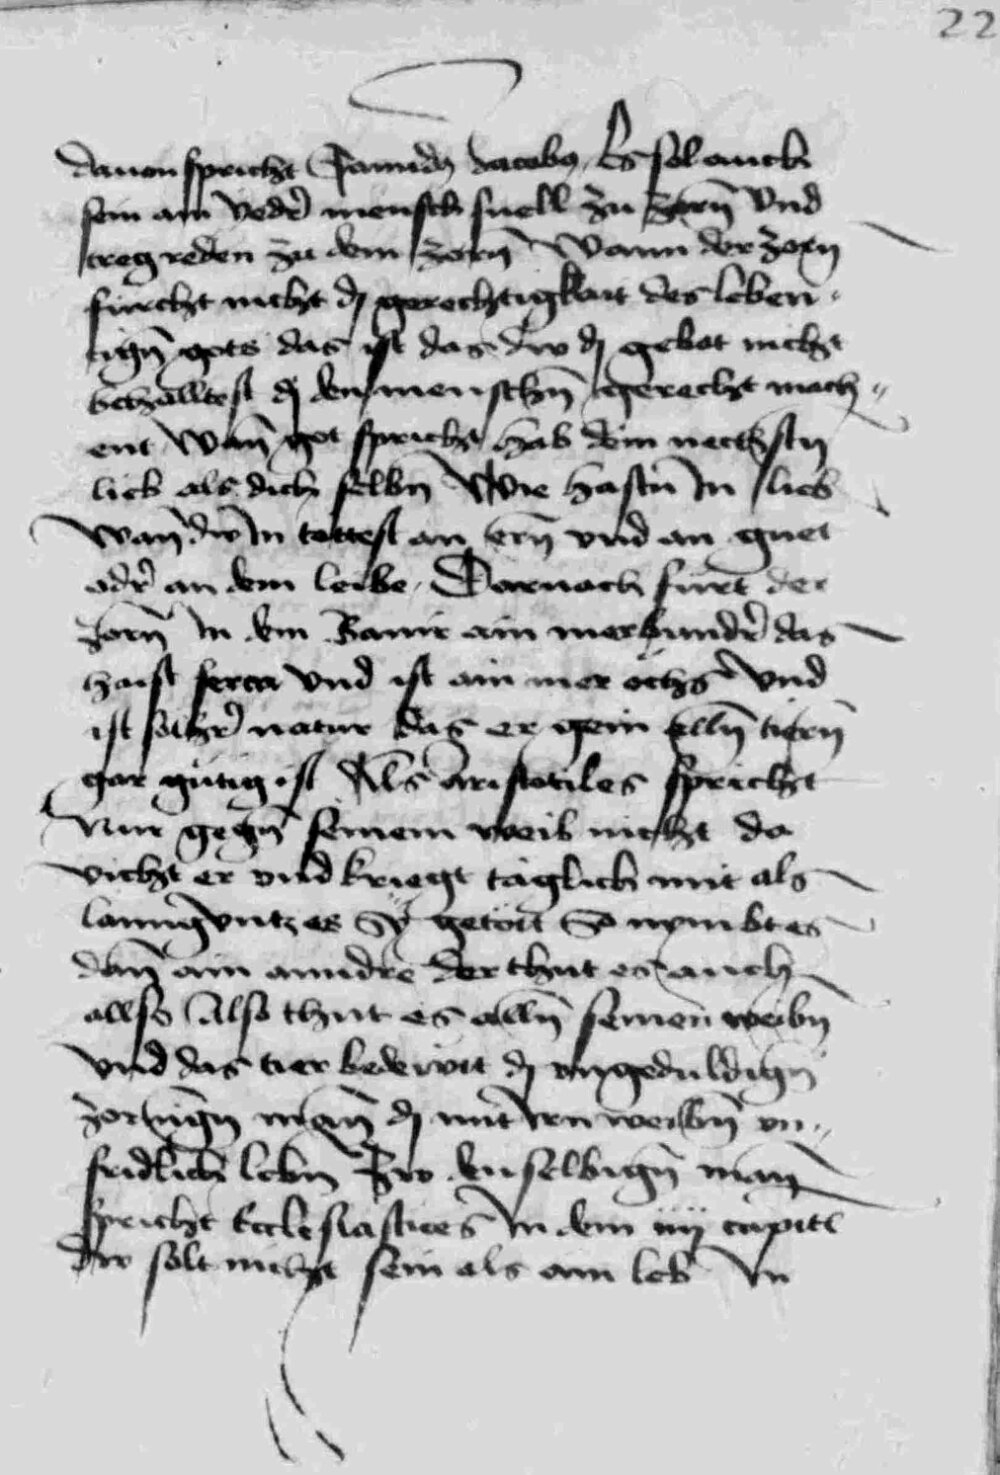 22
dauon spricht Sannd Jacobus Es sol auch
sein ain yedr̄ mensch snell zu hörn̄ vnd
treg reden zu dem zorn̄ Wann der zorn
fürcht nicht dy gerechtigkait des leben-
tign̄ gots das ist das dw dy gebot nicht
behalltest dy den menschn̄ gerecht mach-
ent Wan̄ got spricht hab dein nechstn̄
lieb als dich selbn̄ Wie hastu In lieb
Wan̄ dw In tottest an ern̄ vnd an guet
odr̄ an dem leibe Darnach fürt der
zorn̄ In dem Banir ain merhundr̄ das
haist und ist ain mer ochs vnd
ist solhr̄ natur das er gein alln̄ tiern̄
gar gütig ist Als Aristotiles spricht
Nur gegn̄ seinem weib nicht da
vicht er vnd kriegt täglich mit als
lanng vntz es Sy getött So nymbt es
dan̄ ain anndre der thut es auch
allso Also thut es alln̄ seinen weibn̄
vnd das tier bedewtt dy vngeduldign̄
zornign̄ man̄ dy mit Irn weibn̄ vn-
fridlich lebn̄ Zw denselbign̄ man
spricht Ecclesiasticus In dem iiij capitl
Dw solt nicht sein als ain leb In